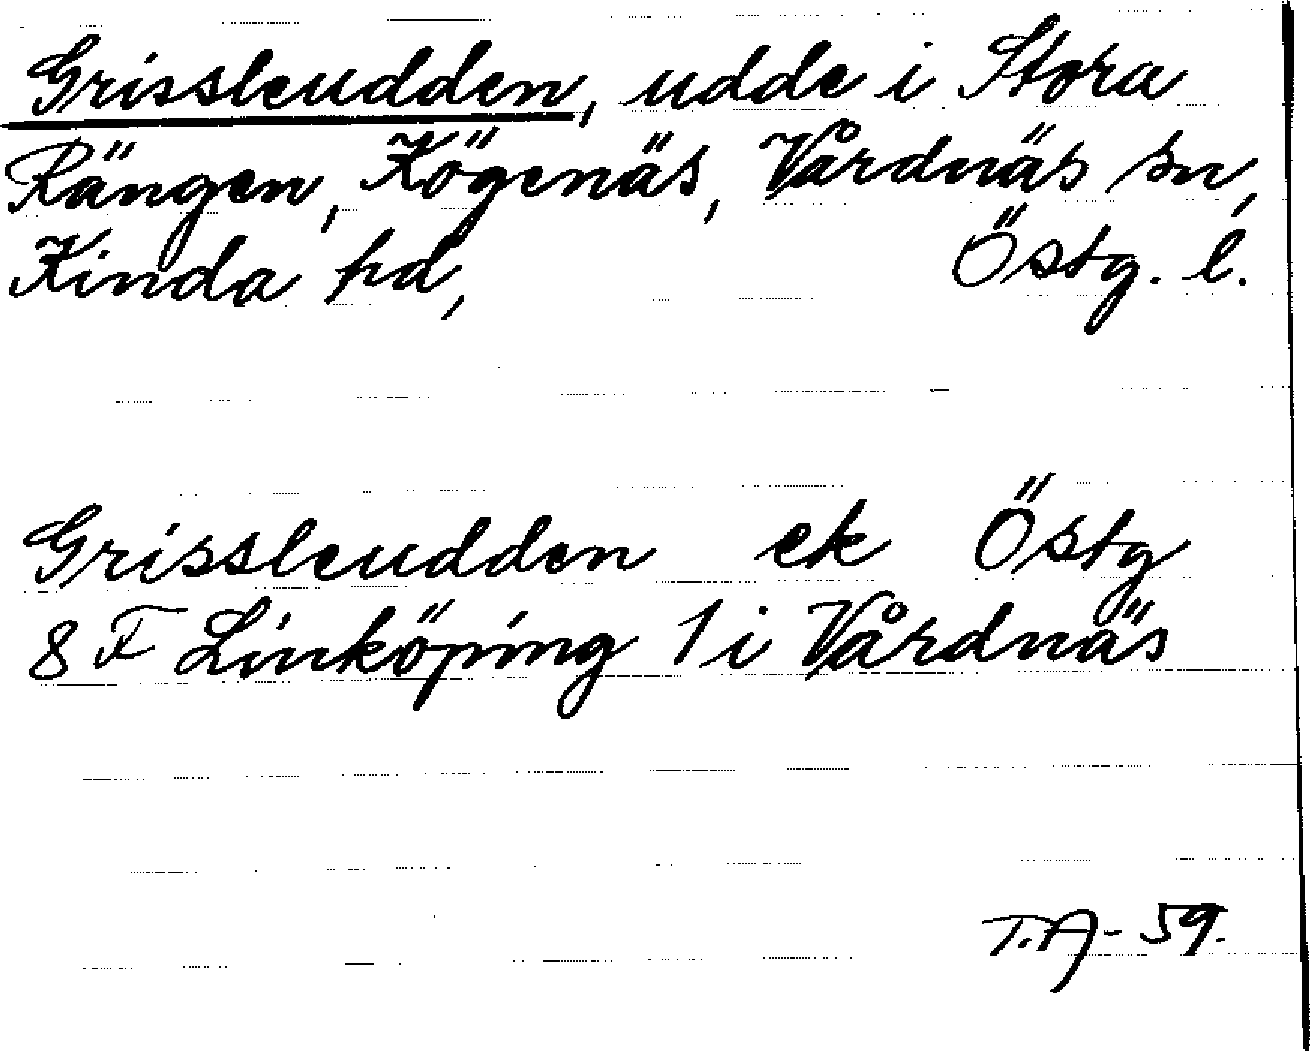 Grissleudden, udde i Stora
Rängen, Kögenäs, Vårdnäs sn,
Kinda hd, Östg. l.
Grissleudden ek Östg
8 F Linköping 1 i Vårdnäs
T.A-59.